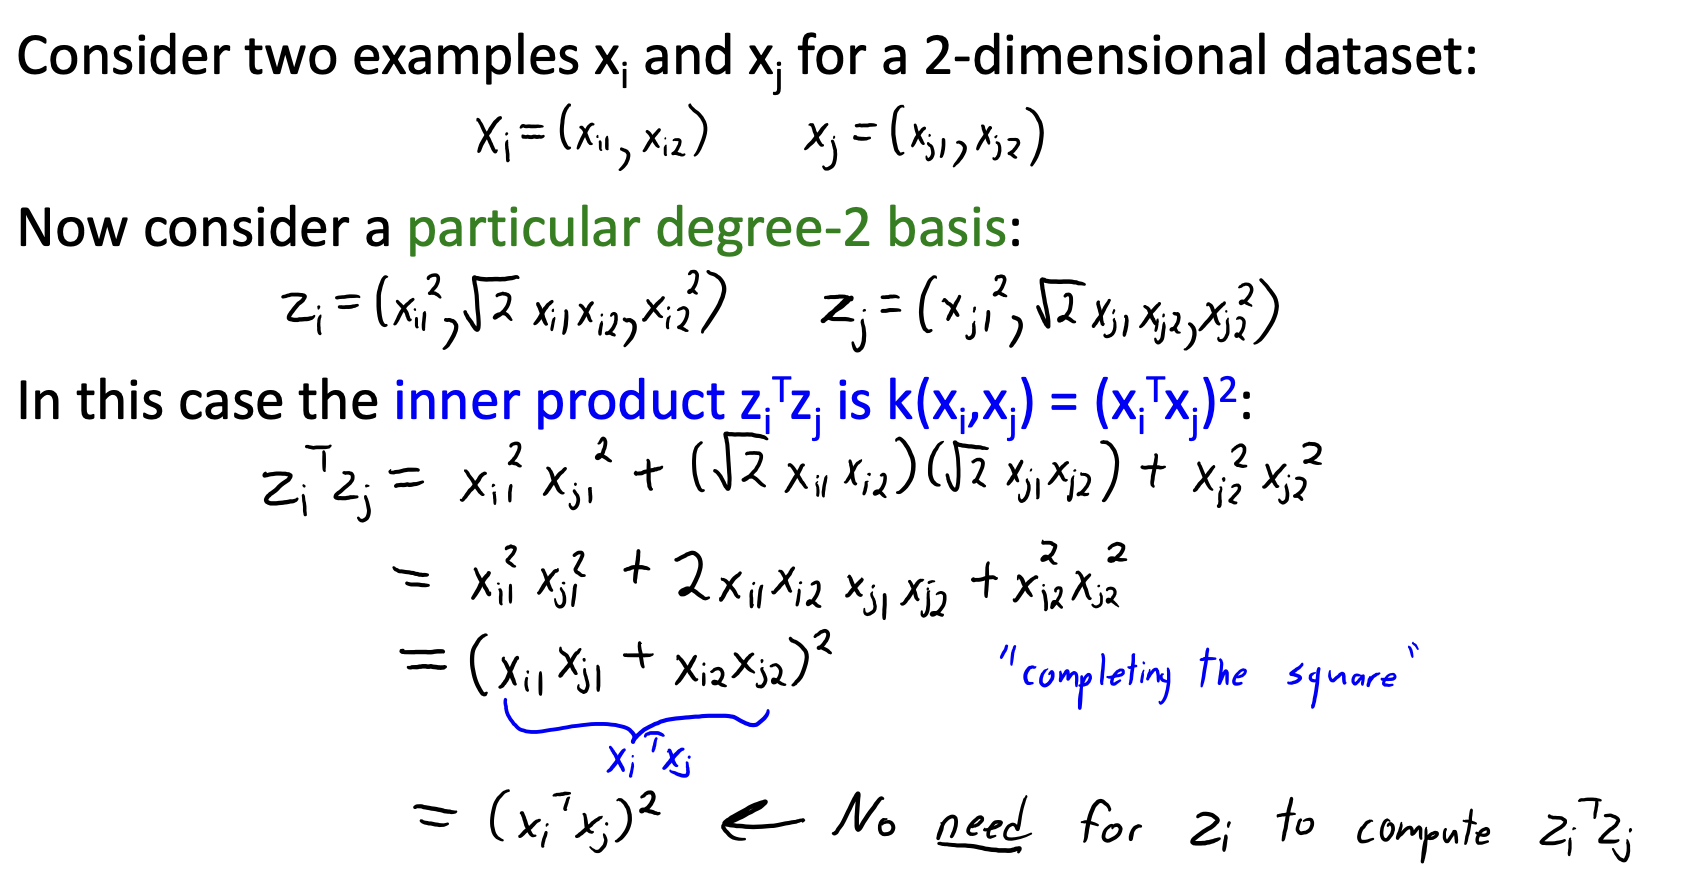 Consider two examples xᵢ and xⱼ for a 2-dimensional dataset:
xᵢ = (xᵢ₁, xᵢ₂)   xⱼ = (xⱼ₁, xⱼ₂)
Now consider a particular degree-2 basis:
zᵢ = (xᵢ₁², √2 xᵢ₁xᵢ₂, xᵢ₂²)   zⱼ = (xⱼ₁², √2 xⱼ₁xⱼ₂, xⱼ₂²)
In this case the inner product zᵢᵀzⱼ is k(xᵢ,xⱼ) = (xᵢᵀxⱼ)²:
zᵢᵀzⱼ = xᵢ₁² xⱼ₁² + (√2 xᵢ₁ xᵢ₂)(√2 xⱼ₁xⱼ₂) + xᵢ₂² xⱼ₂²
= xᵢ₁² xⱼ₁² + 2xᵢ₁xᵢ₂ xⱼ₁xⱼ₂ + xᵢ₂²xⱼ₂²
= (xᵢ₁xⱼ₁ + xᵢ₂xⱼ₂)²   "completing the square"
xᵢᵀxⱼ
= (xᵢᵀxⱼ)² ← No need for zᵢ to compute zᵢᵀzⱼ